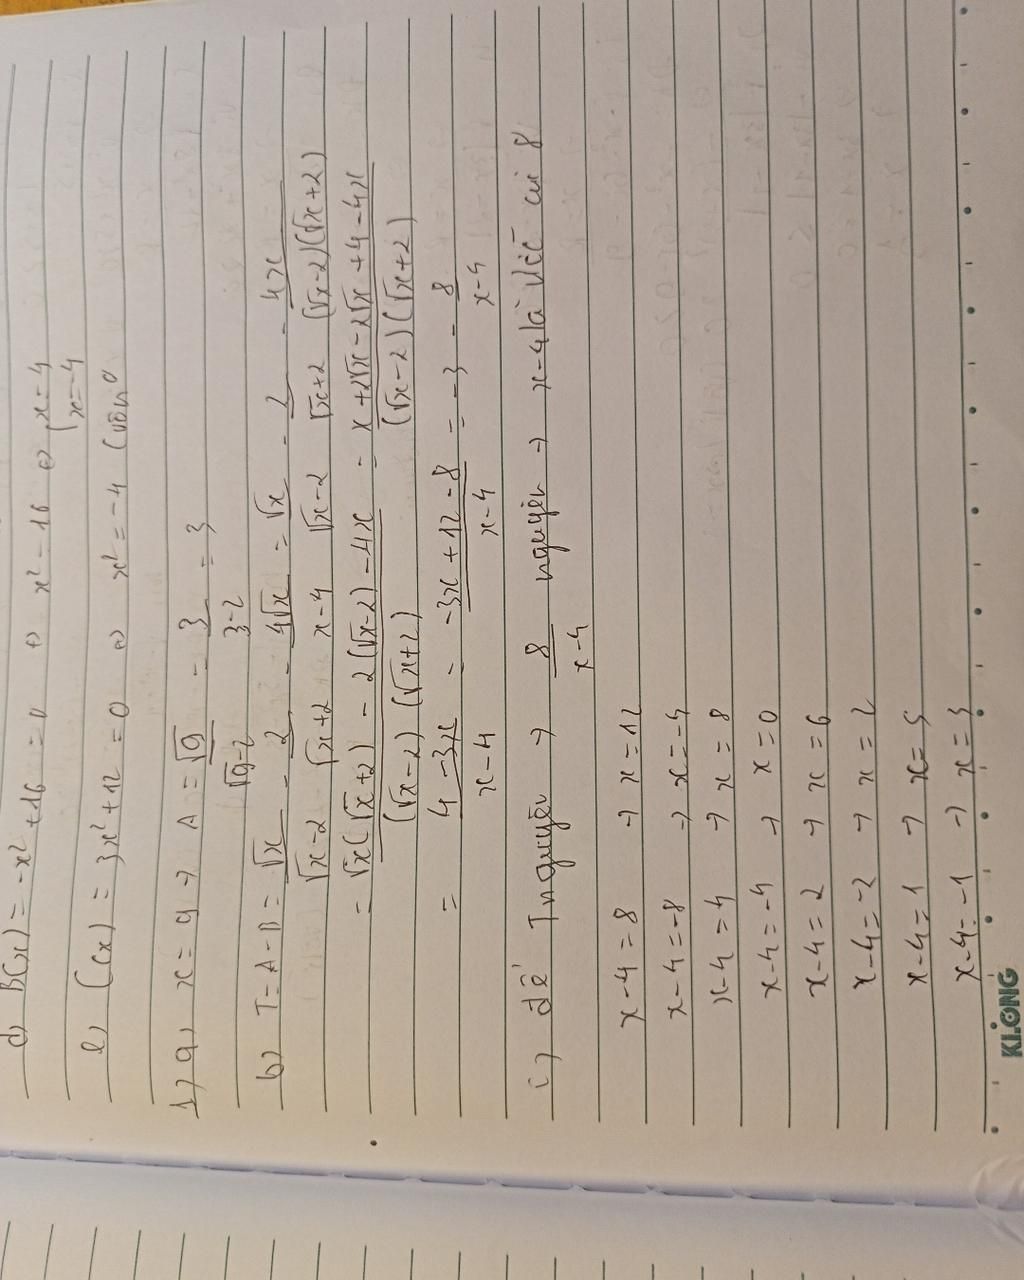 d) B(x) = -x² + 16 = 0 ⇔ x² - 16 ⇔ [x = 4
x = -4
e) C(x) = 3x² + 12 = 0 ⇔ x² = -4 (vô n⁰
1) a) x = 9 → A = √9 / (√9-2) = 3 / (3-2) = 3
b) T = A - B = √x / (√x-2) - 2 / (√x+2) - 4√x / (x-4) = √x / (√x-2) - 2 / (√x+2) - 4x / ((√x-2)(√x+2))
= (√x(√x+2) - 2(√x-2) - 4x) / ((√x-2)(√x+2)) = (x + 2√x - 2√x + 4 - 4x) / ((√x-2)(√x+2))
= (4 - 3x) / (x-4) = (-3x + 12 - 8) / (x-4) = -3 - 8 / (x-4)
c) để T nguyên → 8 / (x-4) nguyên → x-4 là Ước củi 8
x-4 = 8 → x = 12
x-4 = -8 → x = -4
x-4 = 4 → x = 8
x-4 = -4 → x = 0
x-4 = 2 → x = 6
x-4 = -2 → x = 2
x-4 = 1 → x = 5
x-4 = -1 → x = 3
KLONG